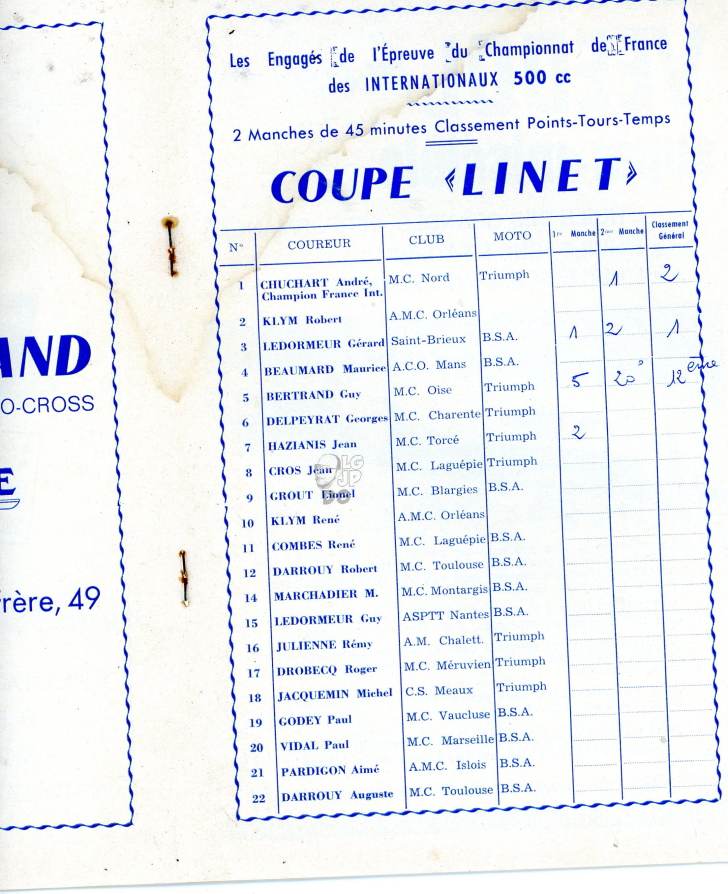 AND
O-CROSS
E
rère, 49
Les Engagés de l'Épreuve du Championnat de France
des INTERNATIONAUX 500 cc
2 Manches de 45 minutes Classement Points-Tours-Temps
COUPE «LINET»
N° COUREUR CLUB MOTO 1re Manche 2me Manche Classement Général
1 CHUCHART André, M.C. Nord Triumph 1 2
Champion France Int.
2 KLYM Robert A.M.C. Orléans
3 LEDORMEUR Gérard Saint-Brieux B.S.A. 1 2 1
4 BEAUMARD Maurice A.C.O. Mans B.S.A.
5 BERTRAND Guy M.C. Oise Triumph 5 20° 12ème
6 DELPEYRAT Georges M.C. Charente Triumph
7 HAZIANIS Jean M.C. Torcé Triumph 2
8 CROS Jean M.C. Laguépie Triumph
9 GROUT Lionel M.C. Blargies B.S.A.
10 KLYM René A.M.C. Orléans
11 COMBES René M.C. Laguépie B.S.A.
12 DARROUY Robert M.C. Toulouse B.S.A.
14 MARCHADIER M. M.C. Montargis B.S.A.
15 LEDORMEUR Guy ASPTT Nantes B.S.A.
16 JULIENNE Rémy A.M. Chalett. Triumph
17 DROBECQ Roger M.C. Méruvien Triumph
18 JACQUEMIN Michel C.S. Meaux Triumph
19 GODEY Paul M.C. Vaucluse B.S.A.
20 VIDAL Paul M.C. Marseille B.S.A.
21 PARDIGON Aimé A.M.C. Islois B.S.A.
22 DARROUY Auguste M.C. Toulouse B.S.A.